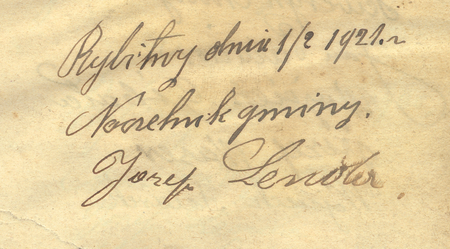 Rybitwy dnia 1/2 1921. r
Naczelnik gminy.
Józef